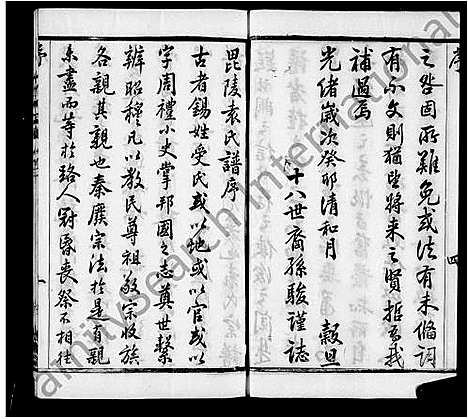 序
四
之咎固所難免或法有未備詞
有不文則猶望將來之賢哲為我
補過焉
光緒歲次癸卯清和月 穀旦
十八世裔孫駿謹誌
毘陵袁氏譜序
古者錫姓受氏或以地或以官或以
字周禮小史掌邦國之志奠世繫
辨昭穆凡以教民尊祖敬宗收族
各親其親也秦廢宗法於是有親
未盡而等於路人冠昏喪祭不相往
序
一
FamilySearch International